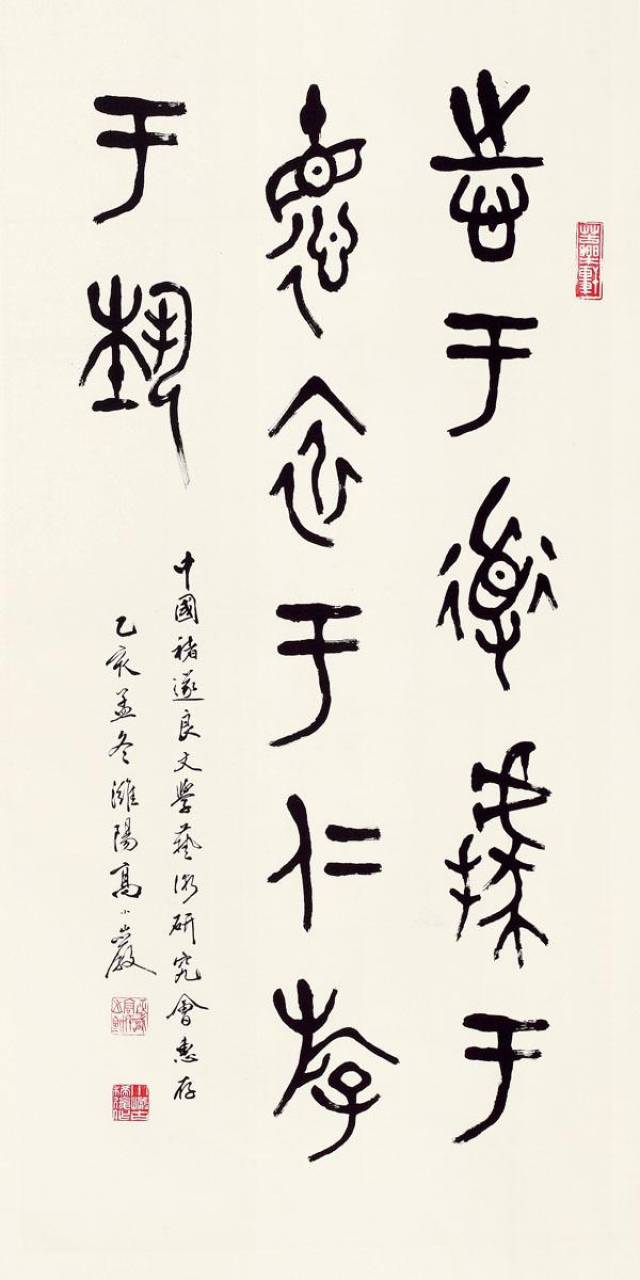 志于道據于
悳依于仁游
于埶
中國褚遂良文學藝術研究會惠存
乙亥孟冬濰陽高小巖